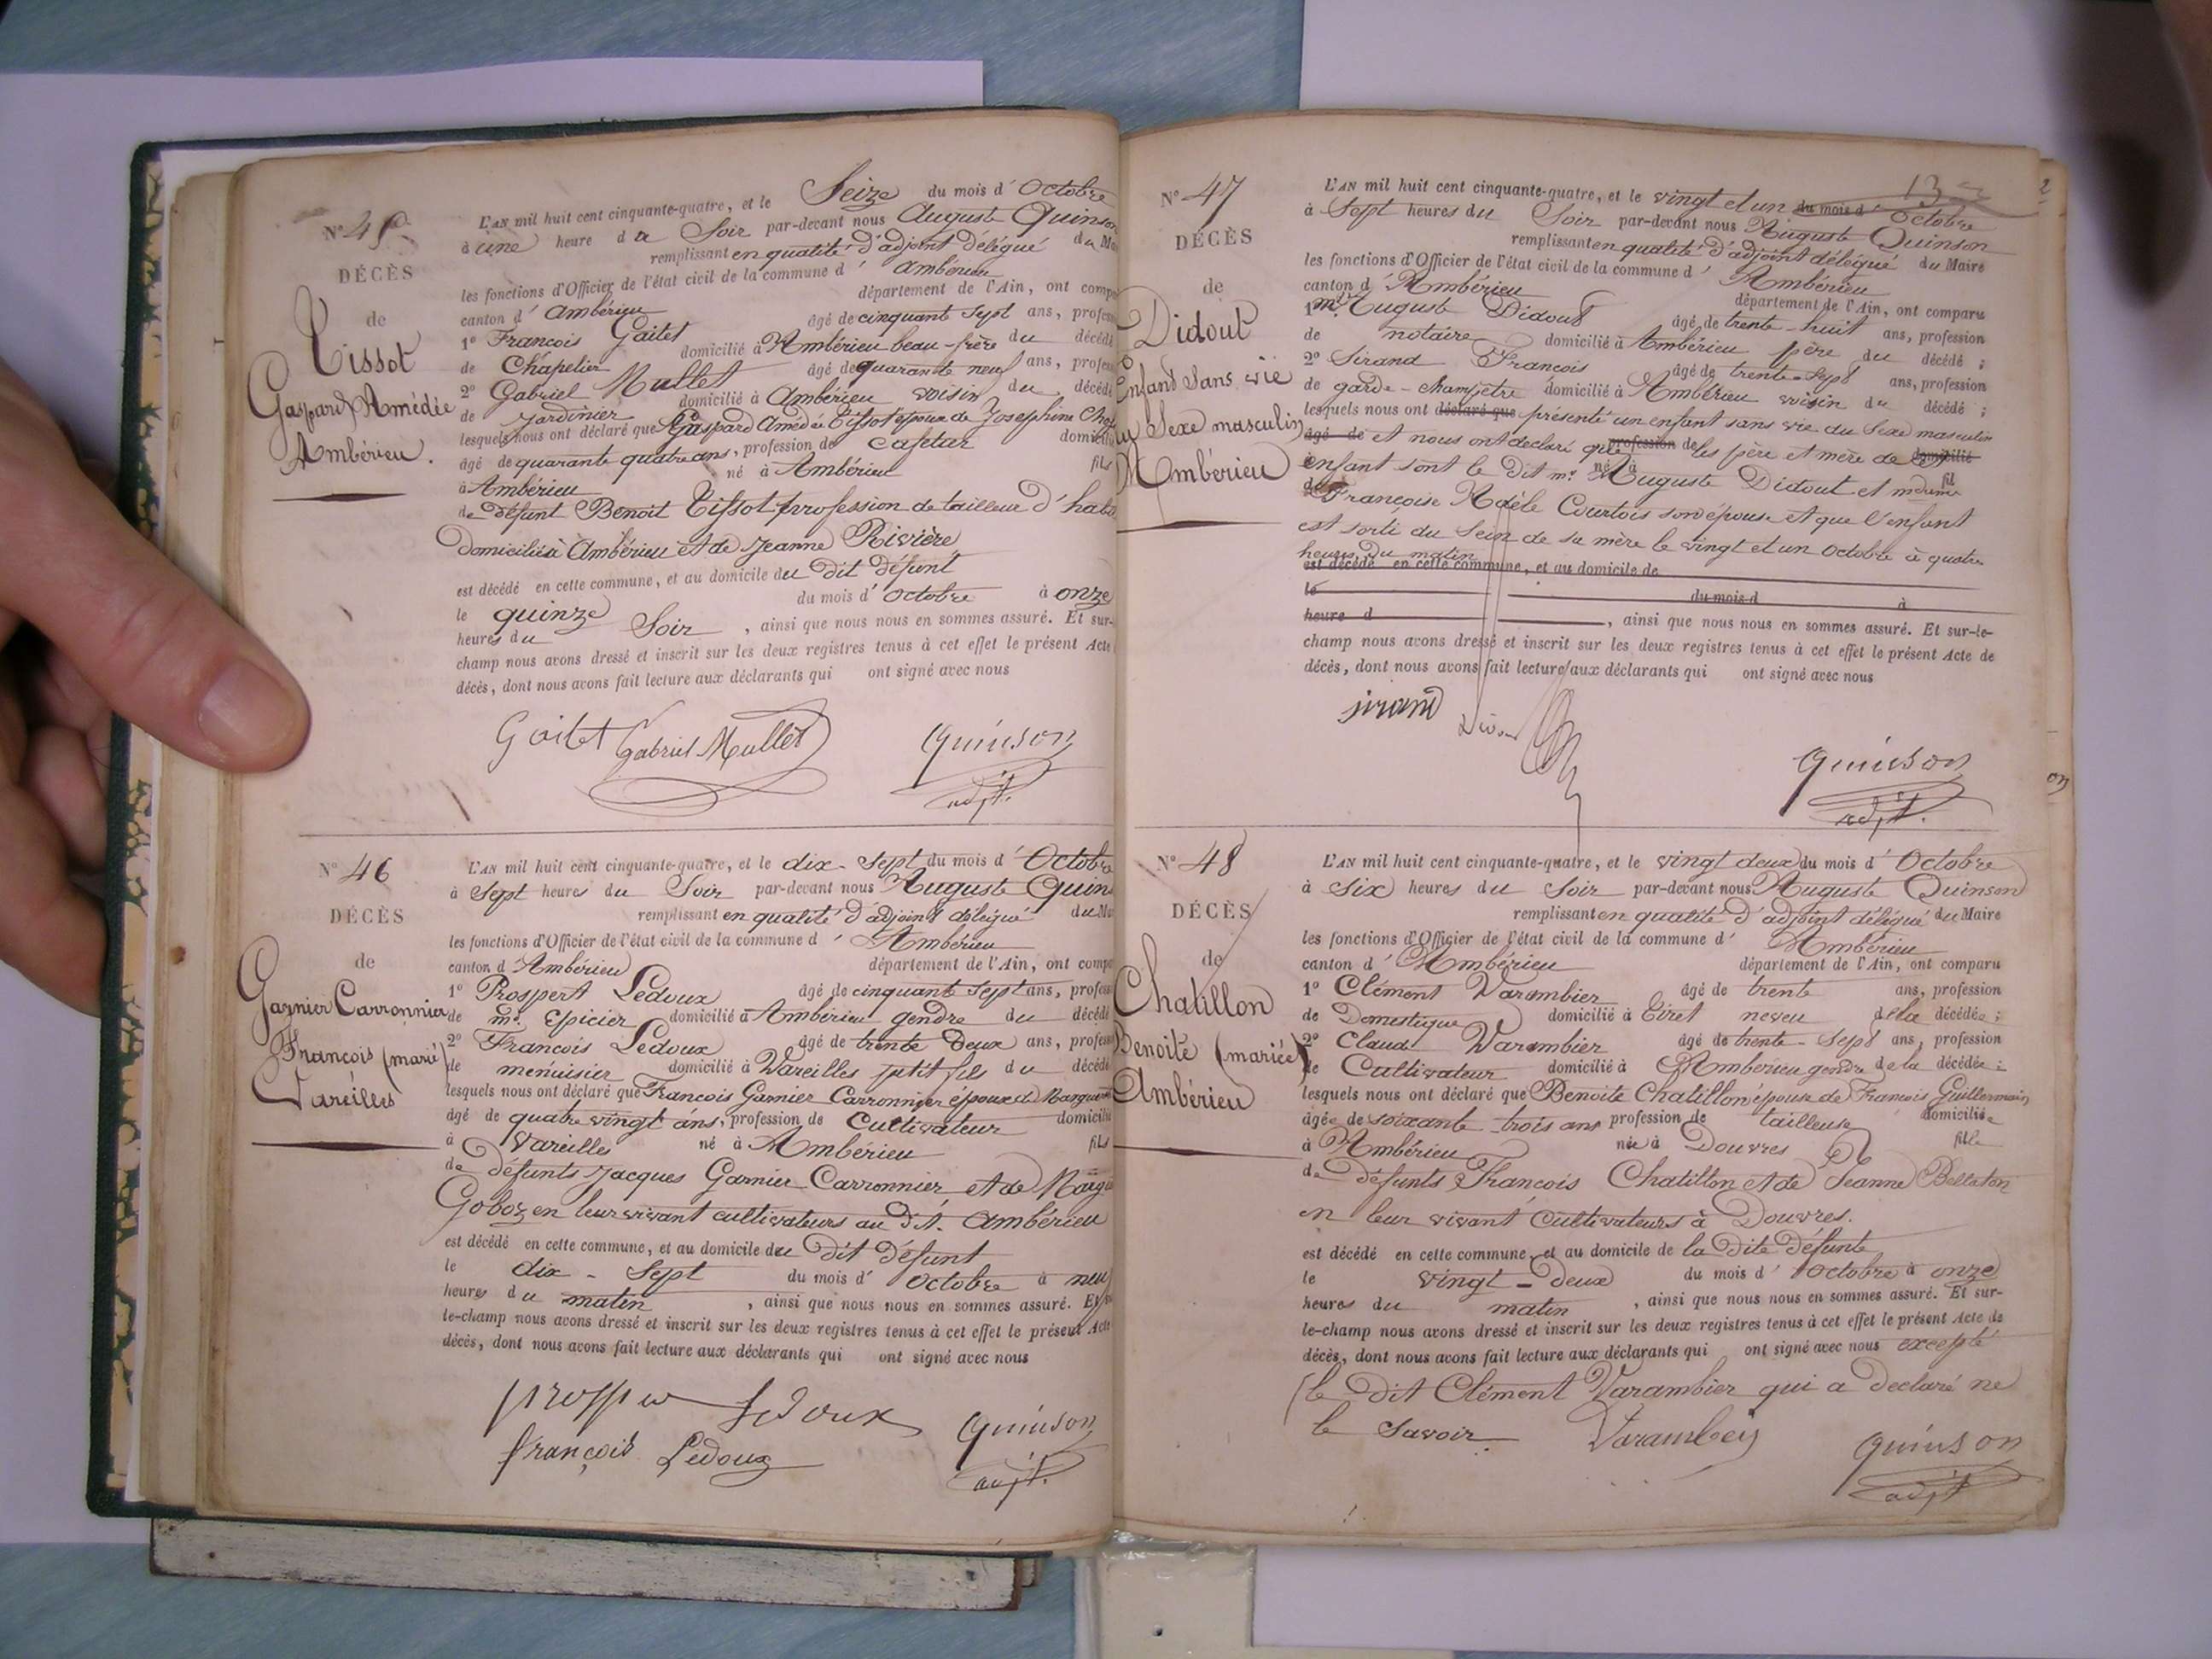 N° 45
DÉCÈS
de
Tissot
Gaspard Amédée
Ambérieu.
L'AN mil huit cent cinquante-quatre, et le Seize du mois d' Octobre
à une heure du Soir par-devant nous Auguste Quinson
remplissant en qualité d'adjoint délégué du
les fonctions d'Officier de l'état civil de la commune d' Ambérieu
canton d' Ambérieu département de l'Ain, ont
1° François Gaitet âgé de cinquante sept ans,
de Chapelier domicilié à Ambérieu beau-frère du décédé
2° Gabriel Mullet âgé de quarante neuf ans,
de Jardinier domicilié à Ambérieu voisin du décédé
lesquels nous ont déclaré que Gaspard Amédée Tissot époux de Josephine
âgé de quarante quatre ans, profession de Cafetier
à Ambérieu né à Ambérieu fils
de défunt Benoit Tissot profession de tailleur d'
Domicilié à Ambérieu et de Jeanne Rivière
est décédé en cette commune, et au domicile du dit défunt
le quinze du mois d' Octobre à onze
heures du Soir, ainsi que nous nous en sommes assuré. Et sur-
champ nous avons dressé et inscrit sur les deux registres tenus à cet effet le présent Acte
décès, dont nous avons fait lecture aux déclarants qui ont signé avec nous
Gaitet Gabriel Mullet Quinson
adjt.
N° 46
DÉCÈS
de
Garnier Carronnier
François (marié)
Vareilles
L'AN mil huit cent cinquante-quatre, et le dix-Sept du mois d' Octobre
à Sept heures du Soir par-devant nous Auguste
remplissant en qualité d'adjoint délégué du
les fonctions d'Officier de l'état civil de la commune d' Ambérieu
canton d' Ambérieu département de l'Ain, ont
1° Prospert Ledoux âgé de cinquante Sept ans,
de md. Epicier domicilié à Ambérieu gendre du décédé
2° François Ledoux âgé de trente Deux ans,
de menuisier domicilié à Vareilles petit fils du décédé
lesquels nous ont déclaré que François Garnier Carronnier époux de
âgé de quatre vingt ans, profession de Cultivateur
à Vareilles né à Ambérieu fils
de défunts Jacques Garnier Carronnier et de
Goboz en leur vivant cultivateurs au dt. Ambérieu
est décédé en cette commune, et au domicile du Dit Défunt
le dix-Sept du mois d' Octobre à
heures du matin, ainsi que nous nous en sommes assuré.
le-champ nous avons dressé et inscrit sur les deux registres tenus à cet effet le présent Acte
décès, dont nous avons fait lecture aux déclarants qui ont signé avec nous
prosper Ledoux
françois Ledoux Quinson
adjt.
13
N° 47
DÉCÈS
de
Didout
Enfant Sans vie
du Sexe masculin
Ambérieu
L'AN mil huit cent cinquante-quatre, et le vingt et un du mois d' Octobre
à Sept heures du Soir par-devant nous Auguste Quinson
remplissant en qualité d'adjoint délégué du Maire
les fonctions d'Officier de l'état civil de la commune d' Ambérieu
canton d' Ambérieu département de l'Ain, ont comparu
1° mr. Auguste Didout âgé de trente-huit ans, profession
de notaire domicilié à Ambérieu père du décédé ;
2° Sirand François âgé de trente-Sept ans, profession
de garde-champêtre domicilié à Ambérieu voisin du décédé ;
lesquels nous ont déclaré que présenté un enfant sans vie du Sexe masculin
âgé de et nous ont declaré que profession de les père et mère de domicilié
à enfant sont le Dit mr. né à Auguste Didout et fil
de Françoise Adèle Courtois son épouse et que l'enfant
est sorti du Sein de sa mère le vingt et un Octobre à quatre
heures du matin
est décédé en cette commune, et au domicile de
le du mois d à
heure d , ainsi que nous nous en sommes assuré. Et sur-le-
champ nous avons dressé et inscrit sur les deux registres tenus à cet effet le présent Acte de
décès, dont nous avons fait lecture aux déclarants qui ont signé avec nous
sirand
Quinson
adjt.
N° 48
DÉCÈS
de
Chatillon
Benoite (mariée)
Ambérieu
L'AN mil huit cent cinquante-quatre, et le vingt deux du mois d' Octobre
à Six heures du Soir par-devant nous Auguste Quinson
remplissant en qualité d'adjoint délégué du Maire
les fonctions d'Officier de l'état civil de la commune d' Ambérieu
canton d' Ambérieu département de l'Ain, ont comparu
1° Clément Varambier âgé de trente ans, profession
de Domestique domicilié à neveu de la décédée ;
2° Claude Varambier âgé de trente-Sept ans, profession
de Cultivateur domicilié à Ambérieu gendre de la décédée ;
lesquels nous ont déclaré que Benoite Chatillon épouse de François Guillermain
âgée de soixante trois ans profession de tailleuse domiciliée
à Ambérieu née à Douvres fille
de défunts François Chatillon et de Jeanne Bellaton
en leur vivant Cultivateurs à Douvres.
est décédé en cette commune, et au domicile de la Dite Défunte
le vingt-Deux du mois d' Octobre à onze
heures du matin, ainsi que nous nous en sommes assuré. Et sur-
le-champ nous avons dressé et inscrit sur les deux registres tenus à cet effet le présent Acte de
décès, dont nous avons fait lecture aux déclarants qui ont signé avec nous excepté
le Dit Clément Varambier qui a declaré ne
le Savoir. Varambier Quinson
adjt